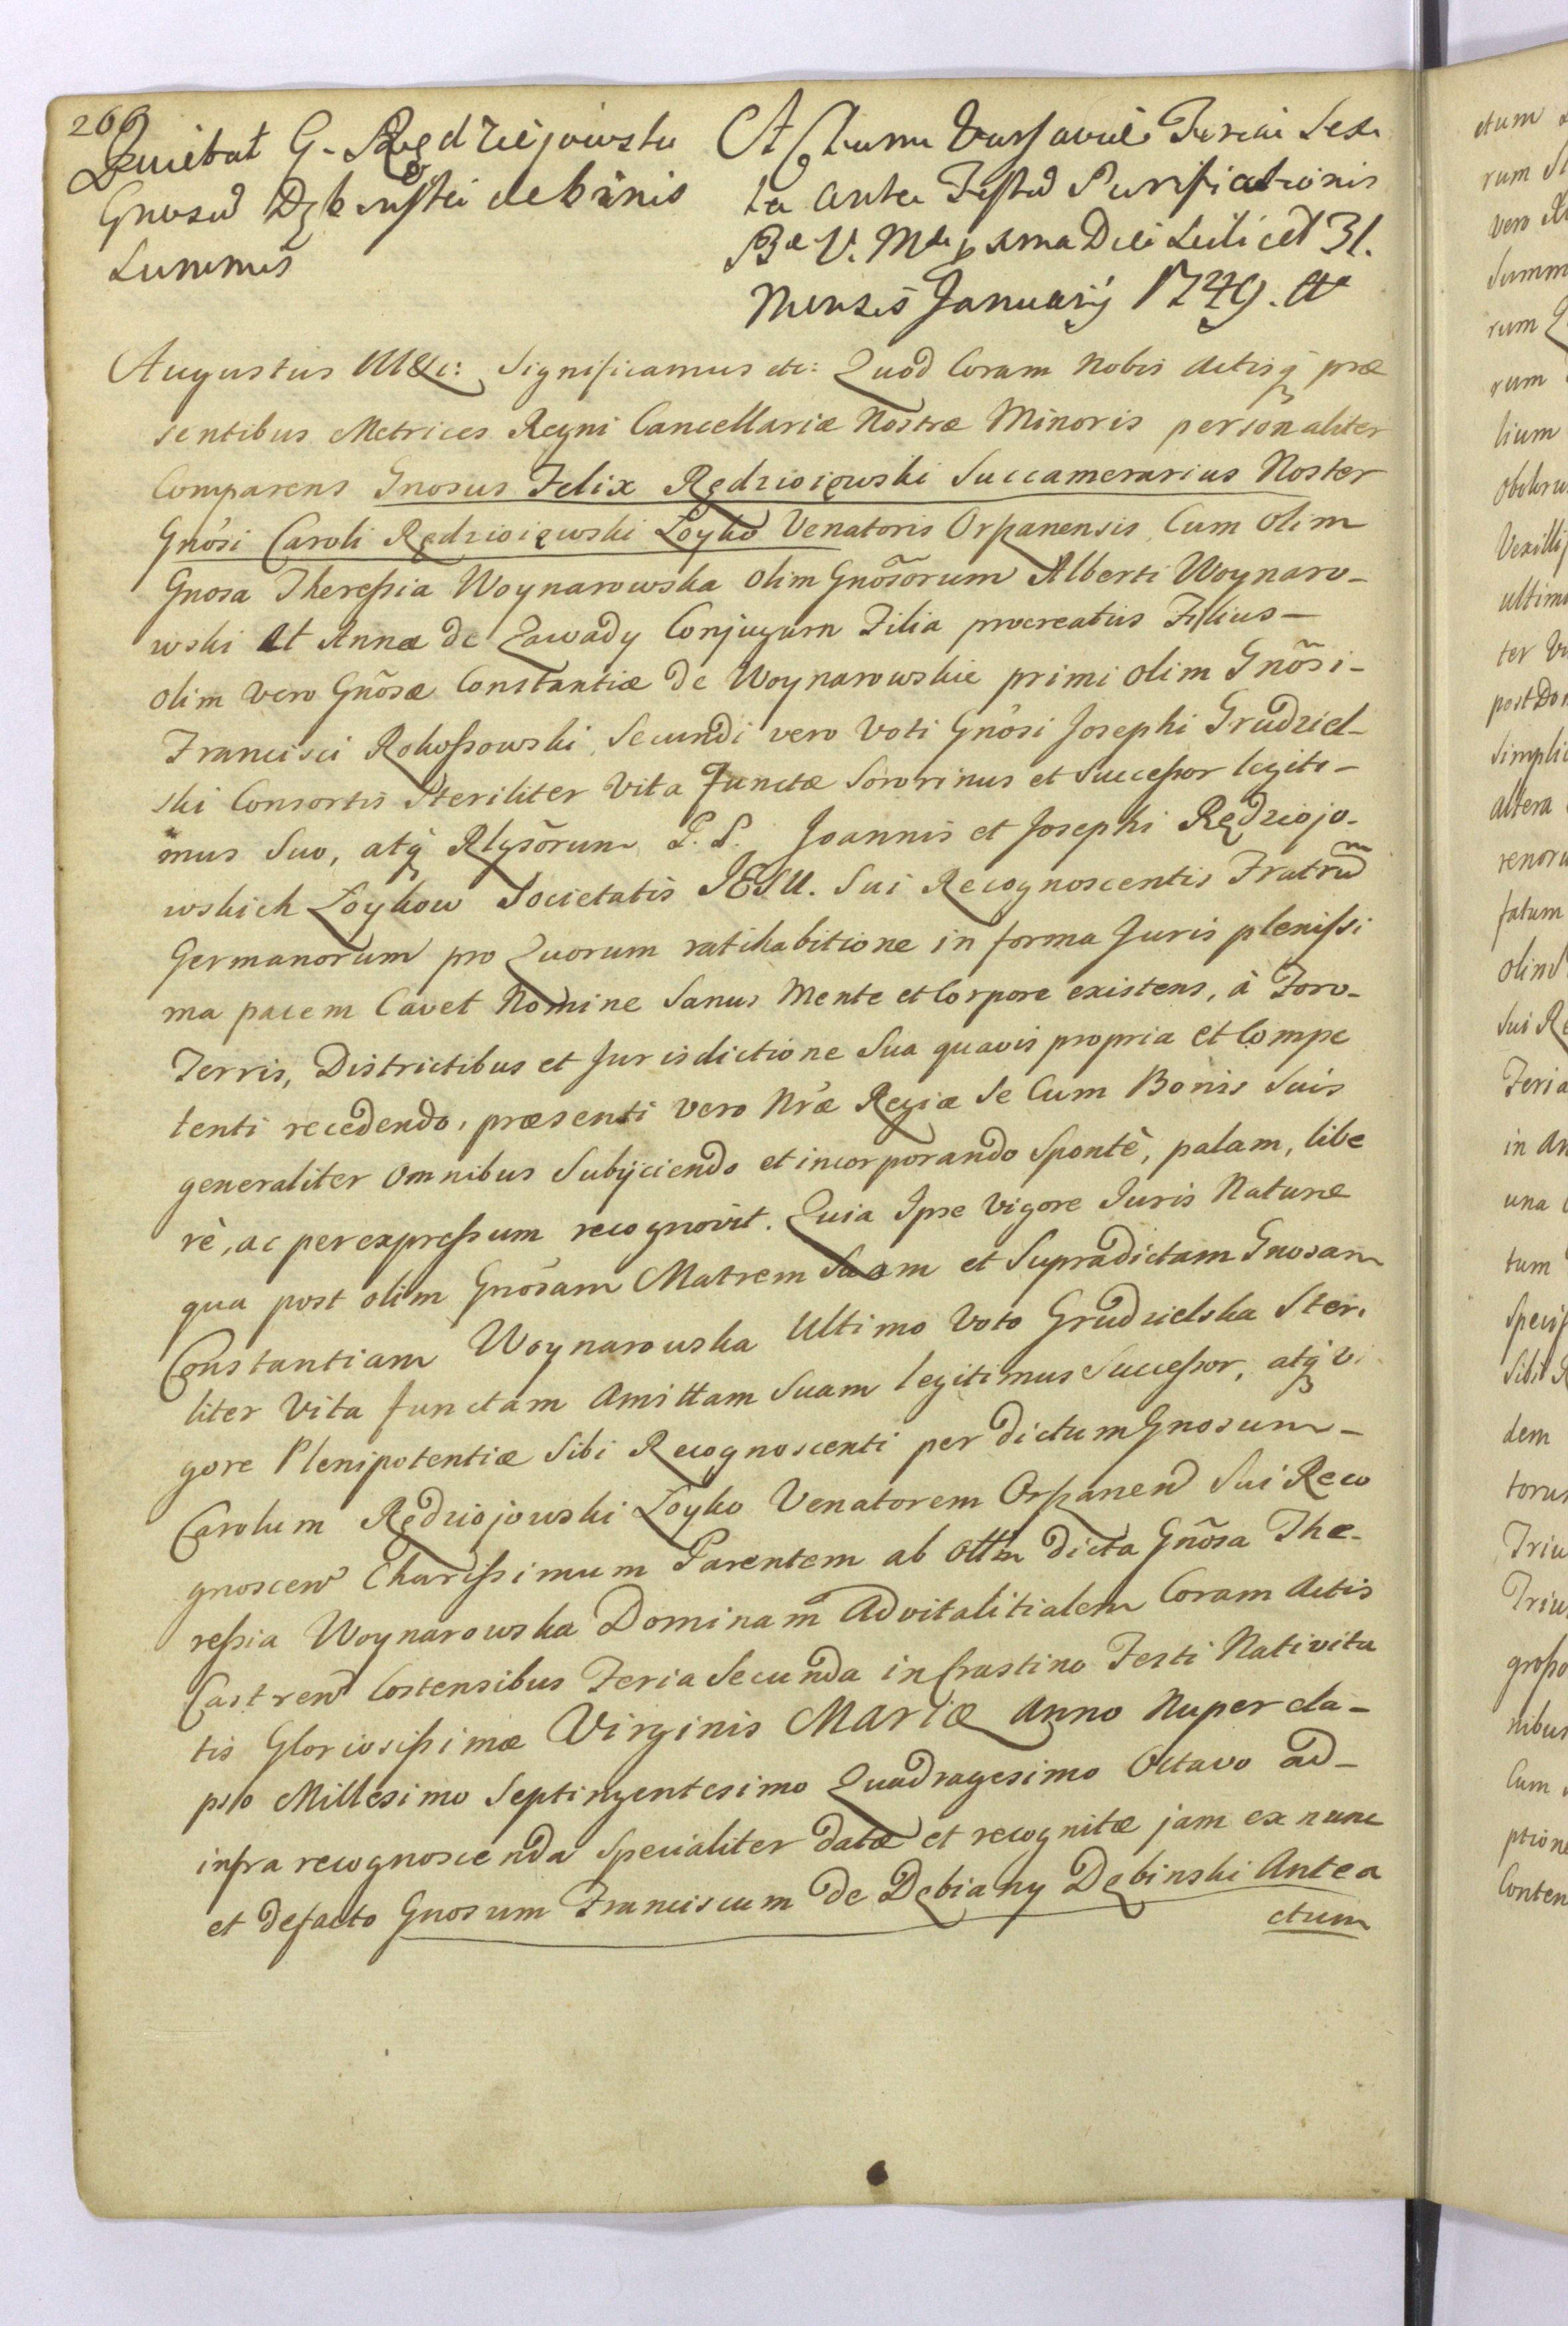 260
Quietat G. Rędziejowski
Gnosu Dębinski de binis
Summis
Actum Varsaviæ Feria Sex
ta Ante Festu Purificationis
Bæ V. Mariæ Die Scilicet 31.
Mensis Januarij 1749. Ao
Augustus III &c: Significamus etc: Quod Coram Nobis Actisq præ
sentibus Metrices Regni Cancellariæ Nostræ Minoris personaliter
Comparens Gnosus Felix Rędzioiowski Succamerarius Noster
Gnosi Caroli Rędzioiewski Łoyko Venatoris Orpanensis Cum Olim
Gnosa Theressia Woynarowska olim Gnosorum Alberti Woynaro-
wski Et Annæ de Zawady Conjugum Filia procreatus Filius-
olim vero Gnosæ Constantiæ de Woynarowskie primi olim Gnosi-
Francisci Rokossowski, Secundi vero Voti Gnosi Josephi Grudziel-
ski Consortis Steriliter Vita Functæ Sororinus et Successor legiti-
mus Suo, atq Rlgsorum P. P. Joannis et Josephi Rędziojo-
wskich Łoykow Societatis JESU. Sui Recognoscentis Fratru
Germanorum pro Quorum ratihabitione in forma Juris plenissi
ma pacem Cavet Nomine Sanus Mente et Corpore existens, à Foro-
Terris, Districtibus et Jurisdictione Sua quavis propria et Compe
tenti recedendo, præsenti vero Nræ Regiæ Se Cum Bonis Suis
generaliter Omnibus Subijciendo et incorporando Spontè, palam, libe
rè, ac per expressum recognovit. Quia Ipse Vigore Juris Naturæ
qua post olim Gnosam Matrem Suam et Supradictam Gnosam
Constantiam Woynarowska Ultimo Voto Grudzielska Steri
liter Vita functam Amittam Suam legitimus Successor, atq Vi
gore Plenipotentiæ Sibi Recognoscenti per dictum Gnosum-
Carolum Rędziojowski Łoyko Venatorem Orpanen Sui Reco
gnoscen Charissimum Parentem ab olim dicta Gnosa The-
ressia Woynarowska Dominam Advitalitialem Coram Actis
Castren Costensibus Feria Secunda in Crastino Festi Nativita
tis Gloriosissimæ Virginis MARIÆ Anno Nuper ela-
pso Millesimo Septingentesimo Quadragesimo Octavo ad-
infra recognoscenda Specialiter datæ et recognitæ jam ex nunc
et defacto Gnosum Franciscum de Dębiany Dębinski Antea
ctum